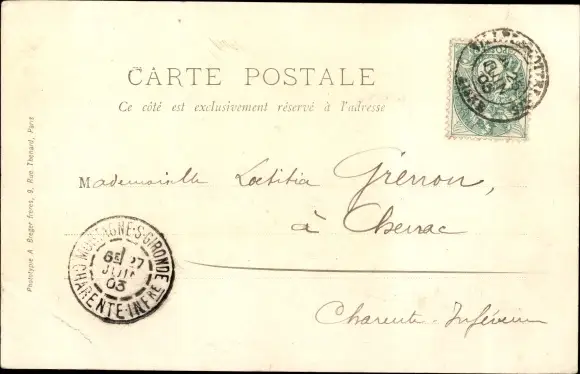 CARTE POSTALE
Ce côté est exclusivement réservé à l'adresse
Mademoiselle Loetitia Grenon,
à Chenac
Charente-Inférieure
MORTAGNE-S-GIRONDE
6E 27
JUIN
03
CHARENTE-INFRE
JUIN
03
Phototypie A. Bergeret frères, 9, Rue Thénard, Paris